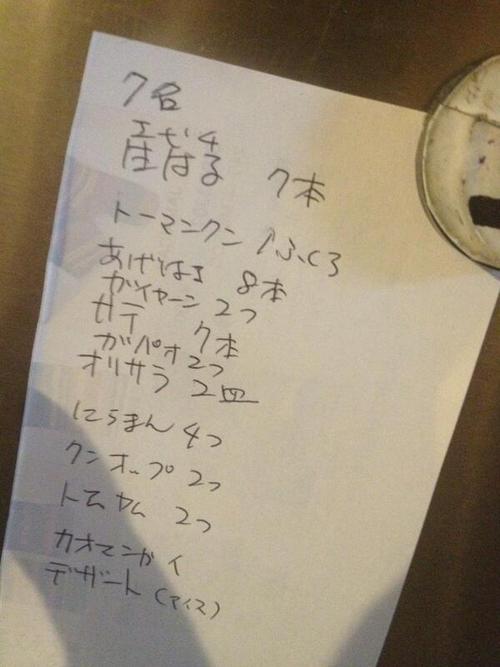 7名
エビ4
生はる 7本
トーマンクン 1ふくろ
あげはる 8本
ガイヤーン 2つ
サテ 7本
ガパオ 2つ
オリサラ 2皿
にらまん 4つ
クンオップ 2つ
トムヤム 2つ
カオマンガイ
デザート (アイス)